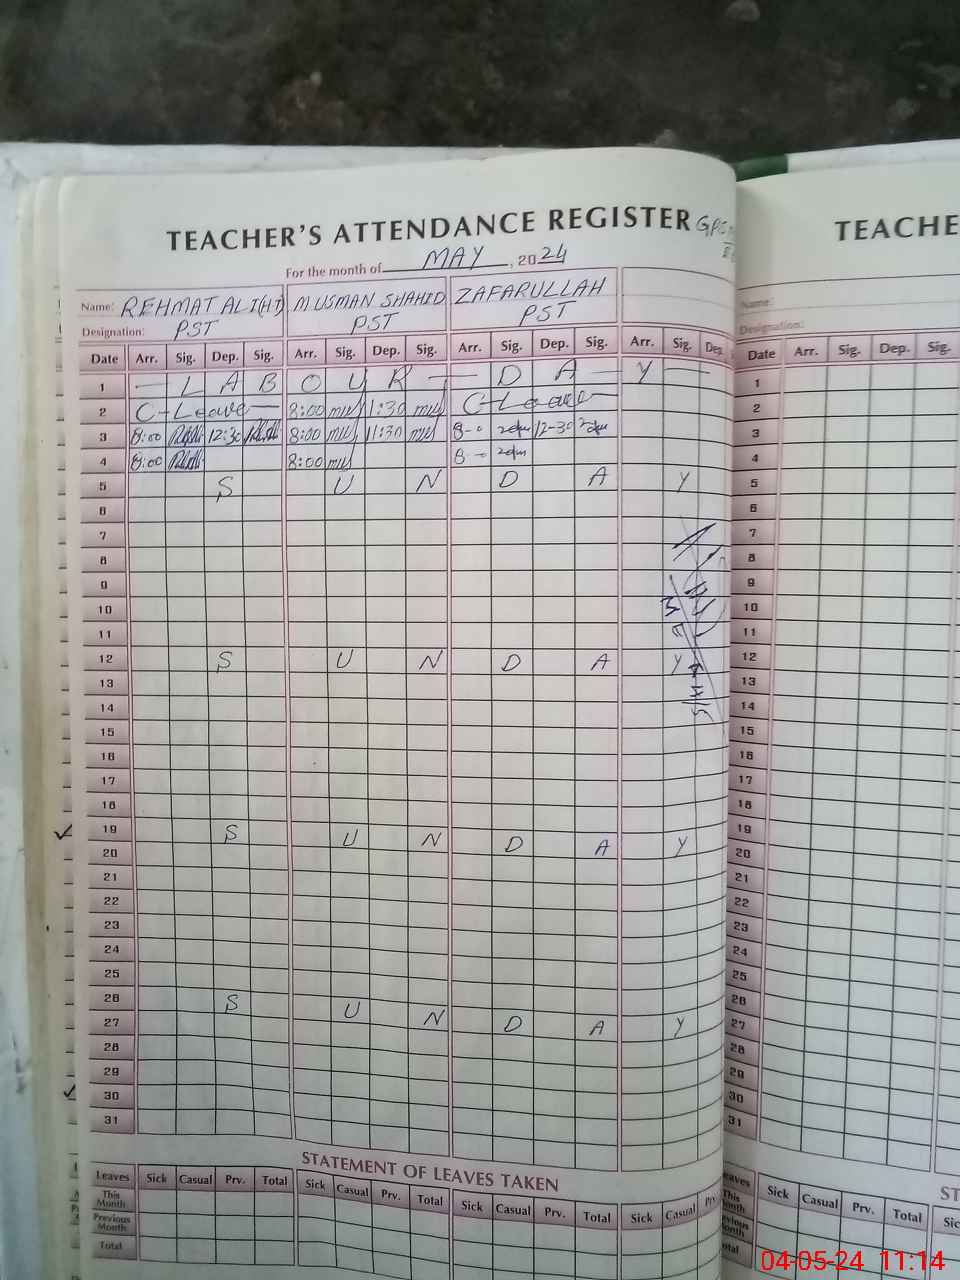 TEACHER'S ATTENDANCE REGISTER
For the month of MAY, 2024
Name: REHMAT ALI (HT) M USMAN SHAHID ZAFARULLAH
Designation: PST PST PST
Date Arr. Sig. Dep. Sig. Arr. Sig. Dep. Sig. Arr. Sig. Dep. Sig. Arr. Sig. Dep.
1 — L A B O U R — D A — Y —
2 C-Leave 8:00 1:30 C-Leave
3 8:00 12:30 8:00 11:30 8-0 12-30
4 8:00 8:00 8-0
5 S U N D A Y
6
7
8
9
10
11
12 S U N D A Y
13
14
15
16
17
18
19 S U N D A Y
20
21
22
23
24
25
26 S U N D A Y
27
28
29
30
31
STATEMENT OF LEAVES TAKEN
Leaves Sick Casual Prv. Total Sick Casual Prv. Total Sick Casual Prv. Total Sick Casual
This Month
Previous Month
Total
TEACHE
Name:
Designation:
Date Arr. Sig. Dep. Sig.
1
2
3
4
5
6
7
8
9
10
11
12
13
14
15
16
17
18
19
20
21
22
23
24
25
26
27
28
29
30
31
ST
Sick Casual Prv. Total
04-05-24 11:14